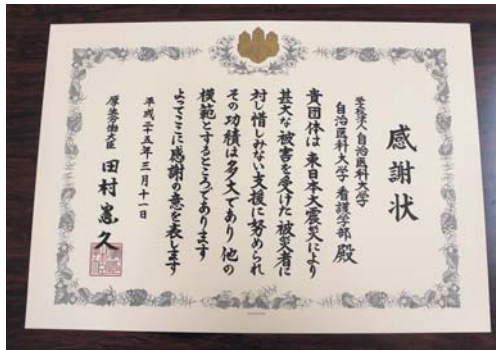 感謝状
学校法人自治医科大学
自治医科大学 看護学部 殿
貴団体は東日本大震災により
甚大な被害を受けた被災者に
対し惜しみない支援に努められ
その功績は多大であり他の
模範とするところであります
よってここに感謝の意を表します
平成二十五年三月十一日
厚生労働大臣 田村憲久